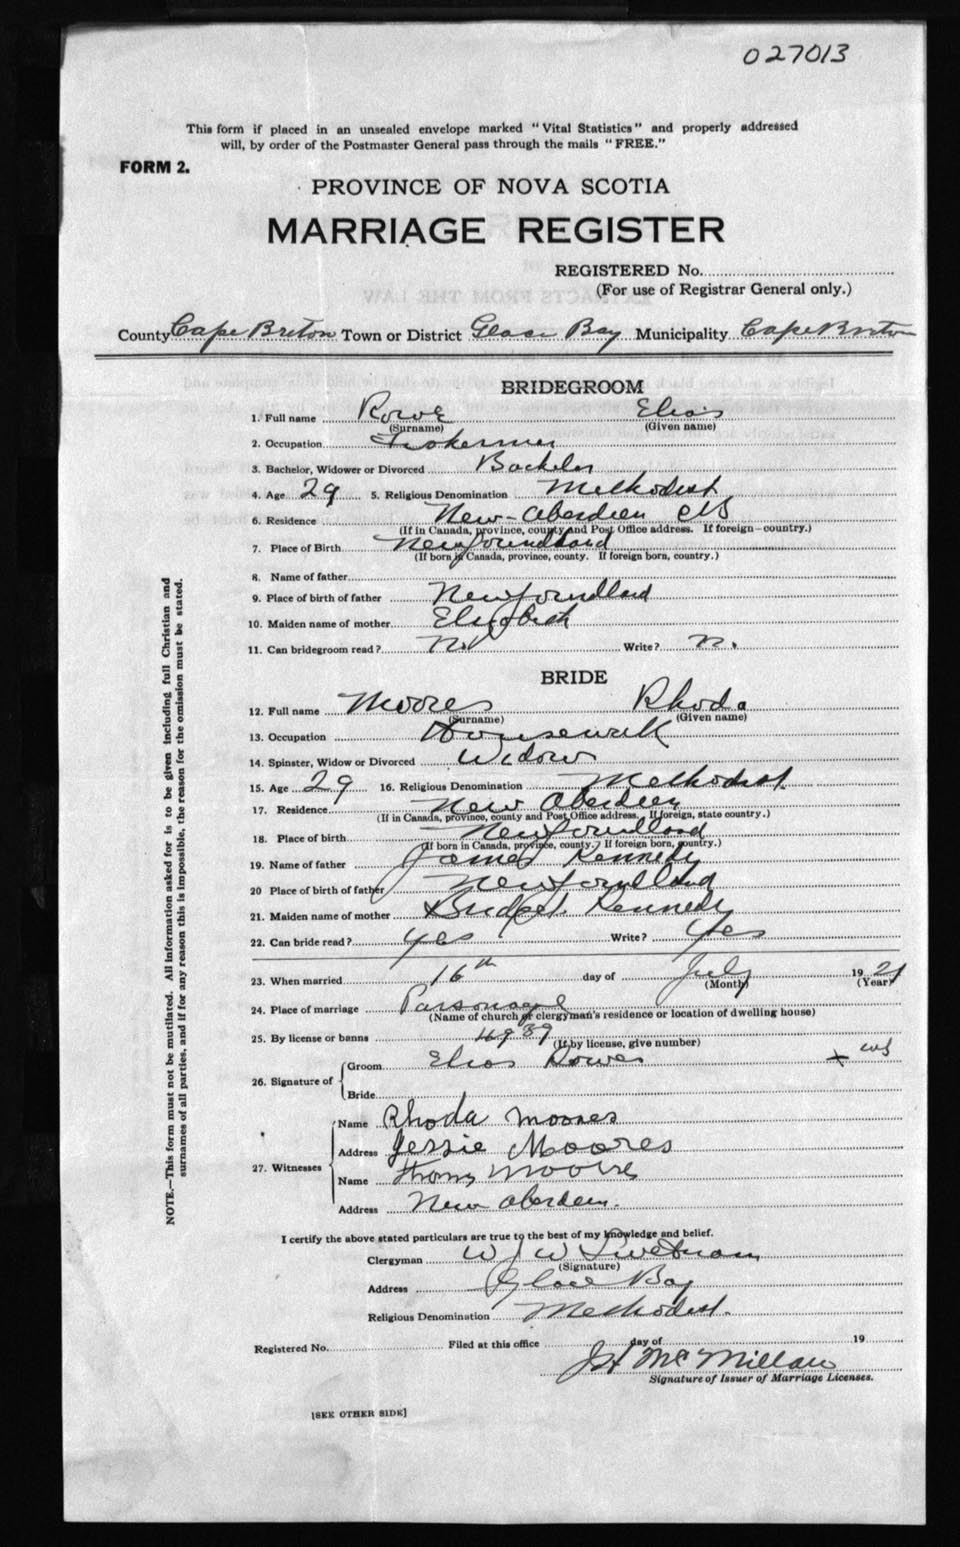 027013
This form if placed in an unsealed envelope marked "Vital Statistics" and properly addressed
will, by order of the Postmaster General pass through the mails "FREE."
FORM 2.
PROVINCE OF NOVA SCOTIA
MARRIAGE REGISTER
REGISTERED No.
(For use of Registrar General only.)
County Cape Breton Town or District Glace Bay Municipality Cape Breton
BRIDEGROOM
1. Full name Rowe Elias
(Surname) (Given name)
2. Occupation
3. Bachelor, Widower or Divorced Bachelor
4. Age 29 5. Religious Denomination Methodist
6. Residence New-Aberdeen CB
(If in Canada, province, county and Post Office address. If foreign-country.)
7. Place of Birth Newfoundland
(If born in Canada, province, county. If foreign born, country.)
8. Name of father
9. Place of birth of father Newfoundland
10. Maiden name of mother Elizabeth
11. Can bridegroom read? No Write? N.
BRIDE
12. Full name Moores Rhoda
(Surname) (Given name)
13. Occupation Housework
14. Spinster, Widow or Divorced Widow
15. Age 29 16. Religious Denomination Methodist.
17. Residence New Aberdeen
(If in Canada, province, county and Post Office address. If foreign, state country.)
18. Place of birth Newfoundland
(If born in Canada, province, county. If foreign born, country.)
19. Name of father James Kennedy
20 Place of birth of father Newfoundland
21. Maiden name of mother Bridget Kennedy
22. Can bride read? yes Write? Yes
23. When married 16th day of July 1921
(Month) (Year)
24. Place of marriage Parsonage
(Name of church or clergyman's residence or location of dwelling house)
25. By license or banns 4989
(If by license, give number)
26. Signature of Groom Elias Rowe x
Bride
27. Witnesses Name Rhoda Moores
Address Jessie Moores
Name Moores
Address New Aberdeen.
I certify the above stated particulars are true to the best of my knowledge and belief.
Clergyman W J W
(Signature)
Address Glace Bay
Religious Denomination Methodist.
Registered No. Filed at this office day of 19
McMillan
Signature of Issuer of Marriage Licenses.
[SEE OTHER SIDE]
NOTE.—This form must not be mutilated. All information asked for is to be given including full Christian and
surnames of all parties, and if for any reason this is impossible, the reason for the omission must be stated.